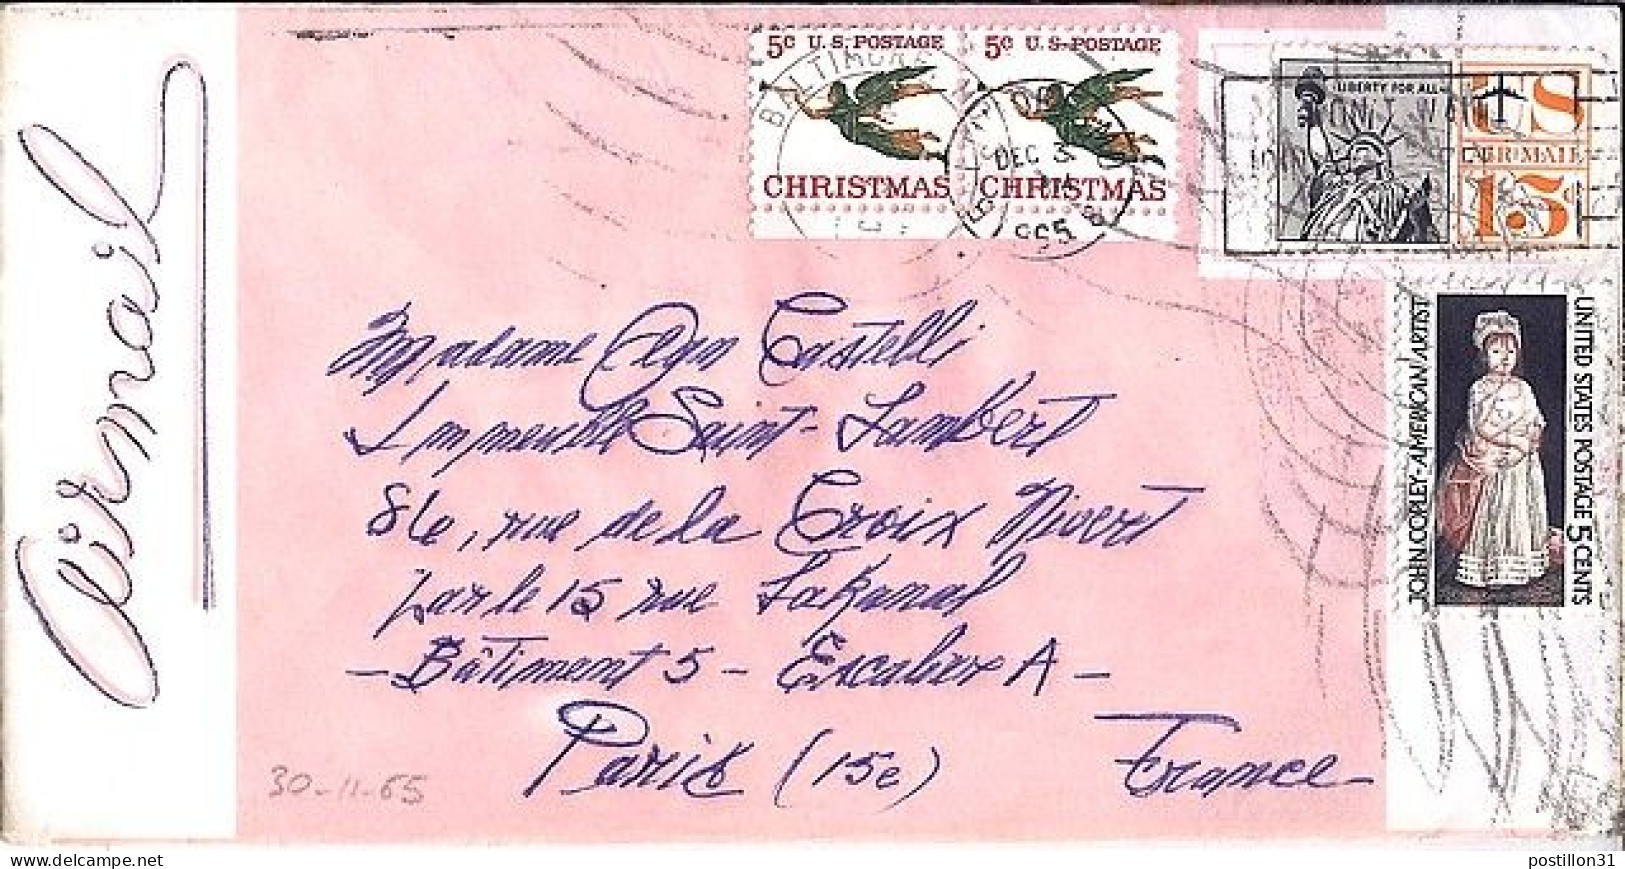 Airmail
5c U.S. POSTAGE
CHRISTMAS
5c U.S. POSTAGE
CHRISTMAS
BALTIMORE
DEC 3
1965
LIBERTY FOR ALL
US
AIR MAIL
15c
JOHN COPLEY · AMERICAN ARTIST
UNITED STATES POSTAGE 5 CENTS
Madame Castelli
Immeuble Saint-Lambert
86, rue de la Croix Nivert
par le 15 rue Lakanal
- Bâtiment 5 - Escalier A -
Paris (15e) France
30-11-65
postillon31